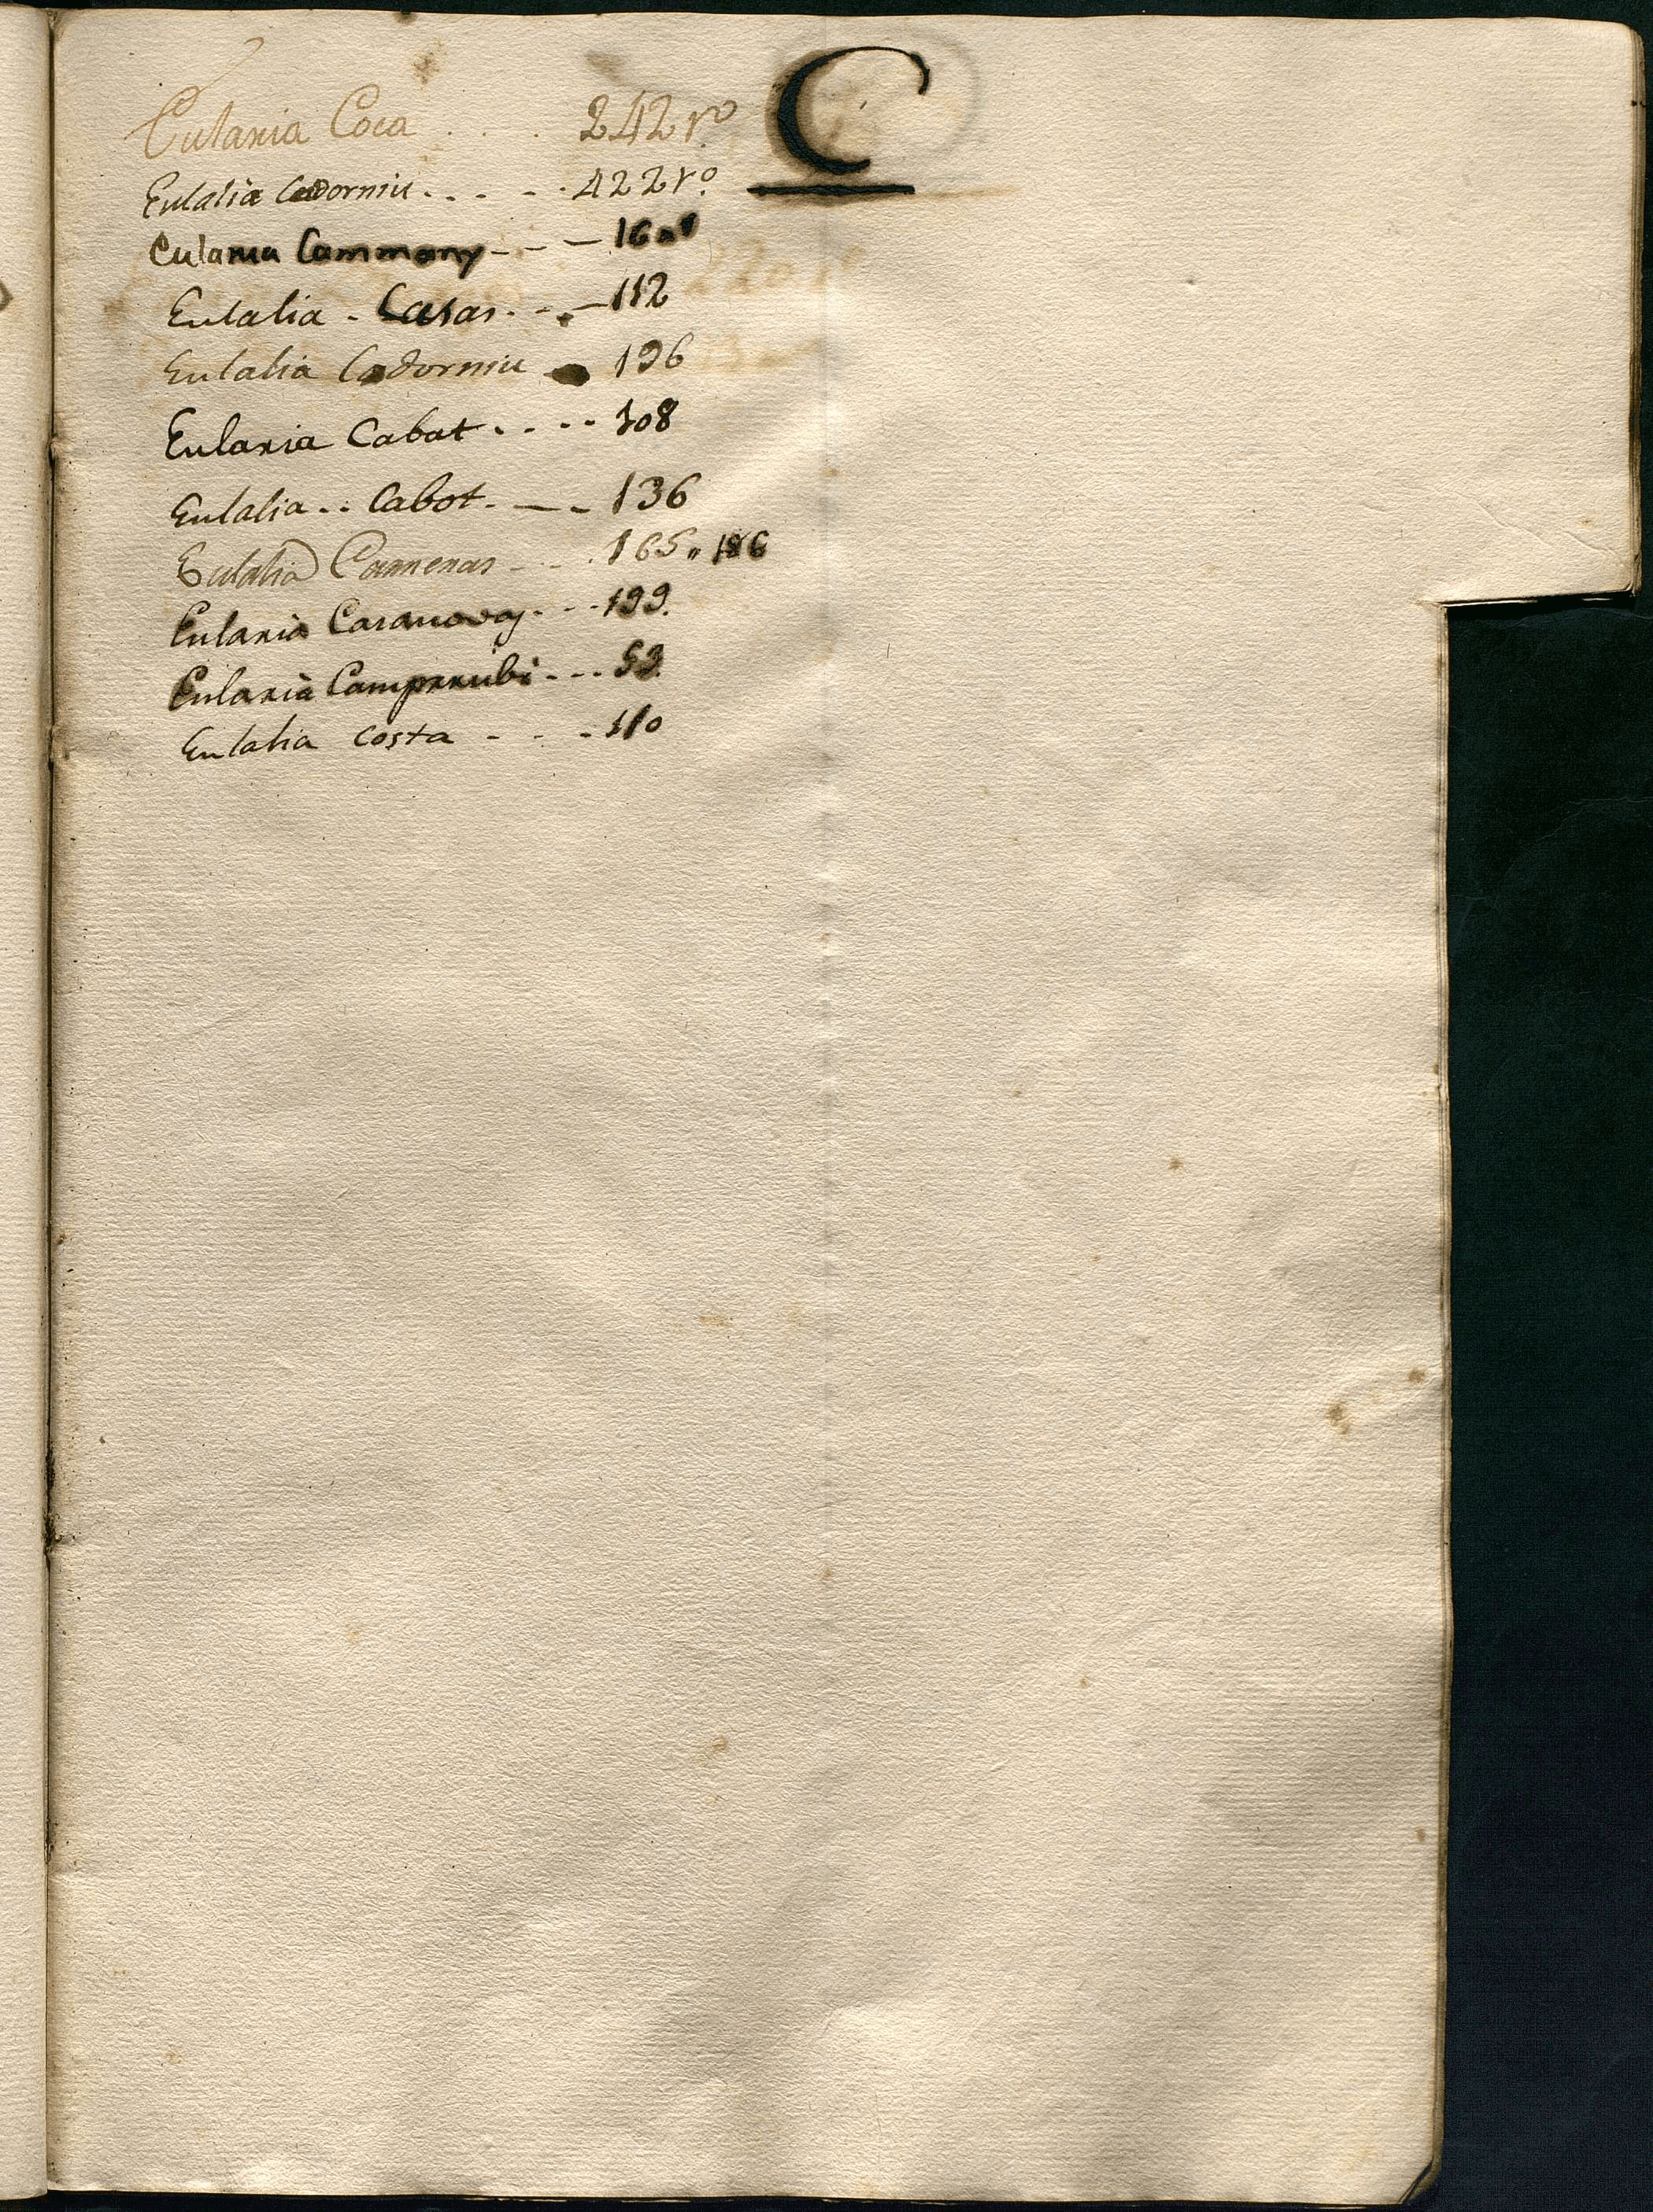 C
Eularia Coca . . . . 242 rº
Eulalia Codorniu . . . - - . 422 rº
Eularia Cammany - - - 160
Eulalia - Casas - - . - 112
Eulalia Codorniu - 196
Eularia Cabat . . - - - 108
Eulalia . . Cabot . - - - 136
Eulalia Comenas - - . . 165 " 186
Eularia Casanovas - - - 199.
Eularia Camprrubi - - - 53.
Eulalia Costa - - - 110